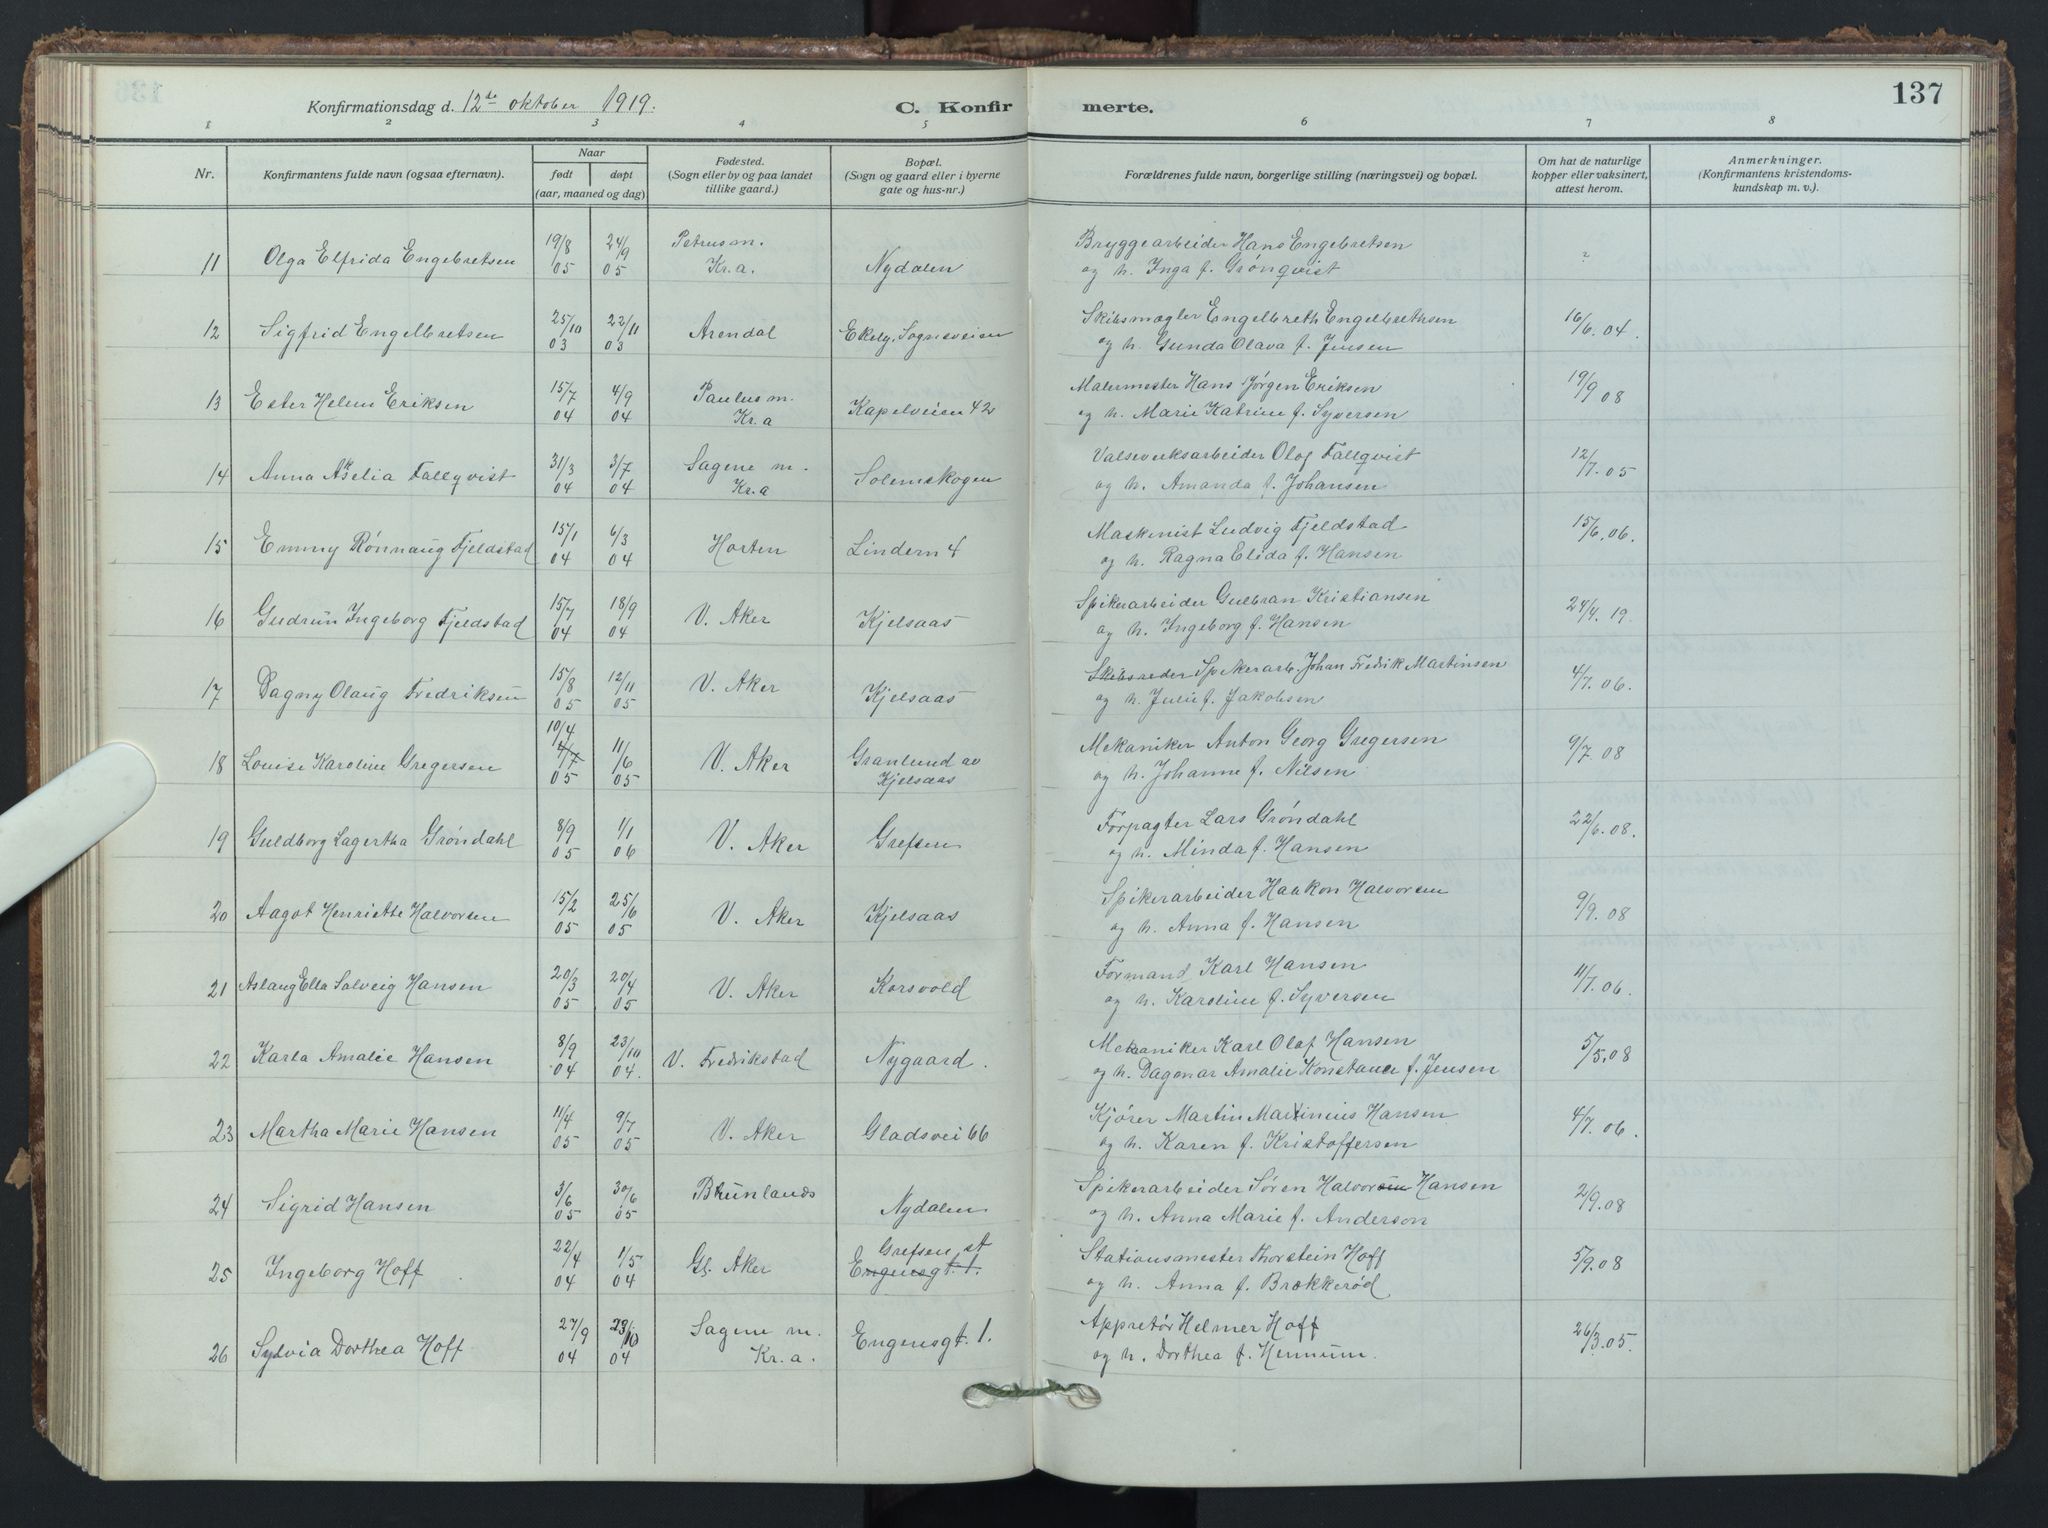 137
Konfirmationsdag d. 12de oktober 1919.
C. Konfirmerte.
1 2 3 4 5 6 7 8
Nr.
Konfirmantens fulde navn (ogsaa efternavn).
Naar
født
døpt
(aar, maaned og dag)
Fødested.
(Sogn eller by og paa landet
tillike gaard.)
Bopæl.
(Sogn og gaard eller i byerne
gate og hus-nr.)
Forældrenes fulde navn, borgerlige stilling (næringsvei) og bopæl.
Om hat de naturlige
kopper eller vaksinert,
attest herom.
Anmerkninger.
(Konfirmantens kristendoms-
kundskap m. v.).
11 Olga Elfrida Engebretsen 19/8 05 24/9 05 Petrus m. Kr.a. Nydalen Bryggearbeider Hans Engebretsen ?
og h. Inga f. Grönqvist
12 Sigfrid Engelbretsen 25/10 03 22/11 03 Arendal Ekely, Sognsveien Skibsmægler Engelbreth Engelbrethsen 16/6.04.
og h. Gunda Olava f. Jensen
13 Ester Helene Eriksen 15/7 04 4/9 04 Paulus m. Kr.a Kapelveien 42 Malermester Hans Jörgen Eriksen 19/9 08
og h. Marie Katrine f. Syversen
14 Anna Aselia Fallqvist 31/3 04 3/7 04 Sagene m. Kr.a Solemskogen Valseverksarbeider Olof Fallqvist 12/7.05
og h. Amanda f. Johansen
15 Emmy Rönnaug Fjeldstad 15/1 04 6/3 04 Horten Lindern 4 Maskinist Ludvig Fjeldstad 15/6.06.
og h. Ragna Elida f. Hansen
16 Gudrun Ingeborg Fjeldstad 15/7 04 18/9 04 V. Aker Kjelsaas Spikerarbeider Gulbran Kristiansen 24/4.19.
og h. Ingeborg f. Hansen
17 Dagny Olaug Fredriksen 15/8 05 12/11 05 V. Aker Kjelsaas Skibsreder Spikerarb. Johan Fredrik Martinsen 4/7.06.
og h. Julie f. Jakobsen
18 Louise Karoline Gregersen 10/4 05 11/6 05 V. Aker Granlund av Kjelsaas Mekaniker Anton Georg Gregersen 9/7 08
og h. Johanne f. Nilsen
19 Guldborg Lagertha Gröndahl 8/9 05 1/1 06 V. Aker Grefsen Forpagter Lars Gröndahl 22/6.08.
og h. Minda f. Hansen
20 Aagot Henriette Halvorsen 15/2 05 25/6 05 V. Aker Kjelsaas Spikerarbeider Haakon Halvorsen 9/9.08
og h. Anna f. Hansen
21 Aslaug Ella Solveig Hansen 20/3 05 20/4 05 V. Aker Korsvold Formand Karl Hansen 11/7.06.
og h. Karoline f. Syversen
22 Karla Amalie Hansen 8/9 04 23/10 04. V. Fredrikstad Nygaard. Mekaniker Karl Olaf Hansen 5/5.08
og h. Dagmar Amalie Konstance f. Jensen
23 Martha Marie Hansen 11/4 05 9/7 05 V. Aker Gladsvei 66 Kjörer Martin Martinius Hansen 4/7.06.
og h. Karen f. Kristoffersen
24 Sigrid Hansen 3/6 05 30/6 05 Brunlands Nydalen Spikerarbeider Sören Halvorsen Hansen 2/9.08
og h. Anna Marie f. Anderson
25 Ingeborg Hoff 22/4 04 1/5 04 Gl. Aker Grefsen st Engensgt. 1. Stationsmester Thorstein Hoff 5/9.08
og h. Anna f. Brækkeröd
26 Sylvia Dorthea Hoff 27/9 04 23/10 04 Sagene m. Kr.a. Engensgt. 1. Appretör Helmer Hoff 26/3.05.
og h. Dorthea f. Hennum.